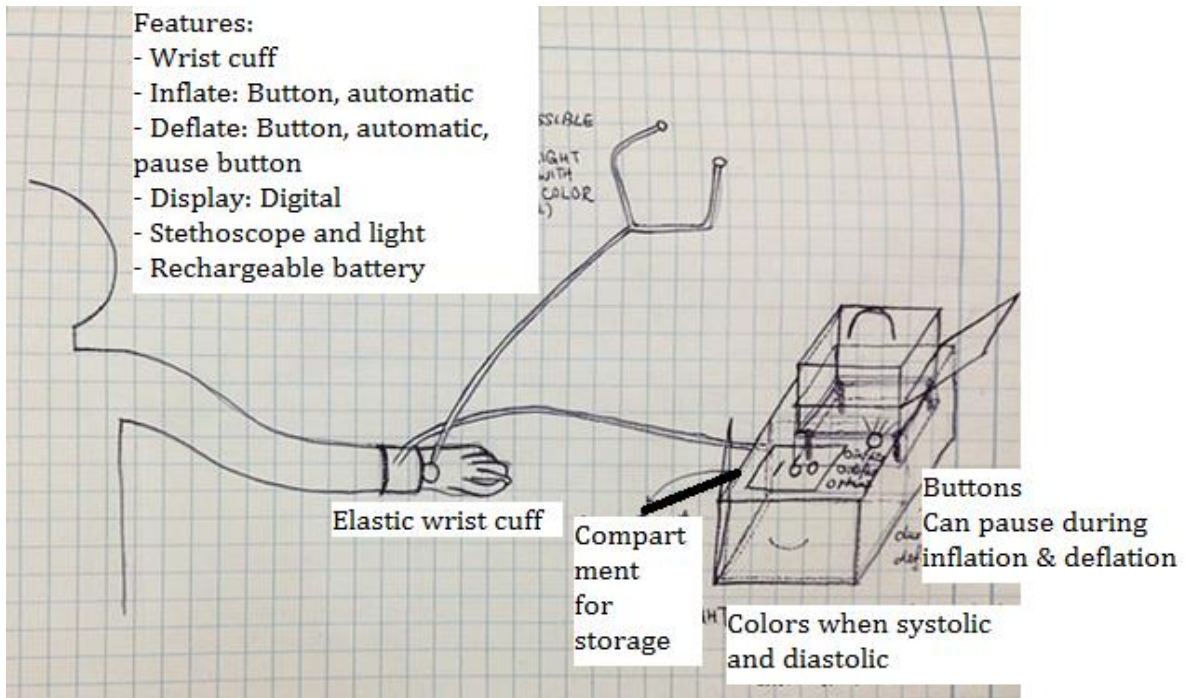 Features:
- Wrist cuff
- Inflate: Button, automatic
- Deflate: Button, automatic,
pause button
- Display: Digital
- Stethoscope and light
- Rechargeable battery
SSIBLE
IGHT
WITH
COLOR
160
Elastic wrist cuff
Compart
ment
for
storage
Buttons
Can pause during
inflation & deflation
HT
Colors when systolic
and diastolic